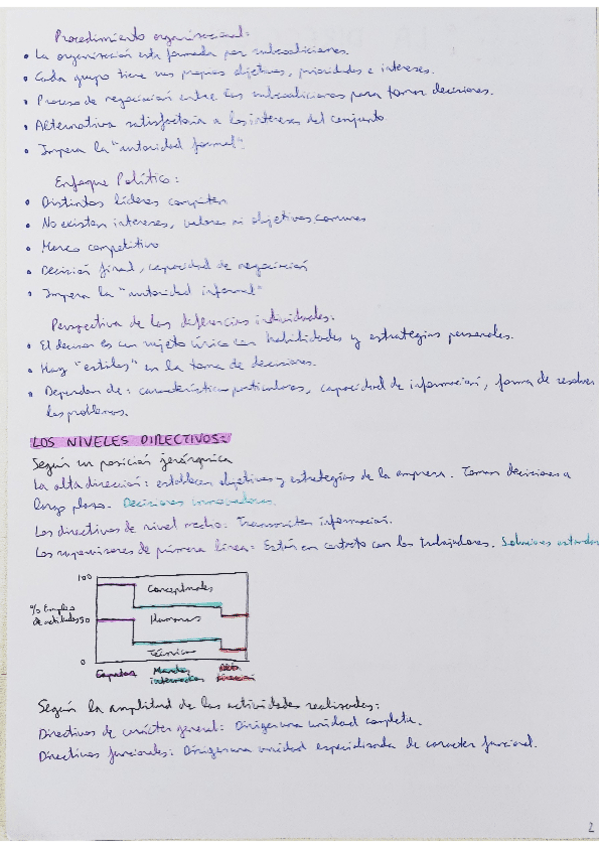 Procedimiento organizacional:
• La organización esta formada por subcoaliciones.
• Cada grupo tiene sus propios objetivos, prioridades e intereses.
• Proceso de negociación entre las subcoaliciones para tomar decisiones.
• Alternativa satisfactoria a los intereses del conjunto
• Impera la "autoridad formal".
Enfoque Político:
• Distintos líderes compiten
• No existen intereses, valores ni objetivos comunes
• Marco competitivo
• Decisión final, capacidad de negociación
• Impera la "autoridad informal"
Perspectiva de las diferencias individuales:
• El decisor es un sujeto único con habilidades y estrategias personales.
• Hay "estilos" en la toma de decisiones.
• Dependen de: características particulares, capacidad de información, forma de resolver
los problemas.
LOS NIVELES DIRECTIVOS:
Según su posición jerárquica
La alta dirección: establecen objetivos y estrategias de la empresa. Toman decisiones a
largo plazo. Decisiones innovadoras.
Los directivos de nivel medio: Transmiten información.
Los supervisores de primera línea: Están en contacto con los trabajadores. Soluciones
100
Conceptuales
% Empleo
de actitudes 50
Humanas
Técnicas
0
Capataz Mandos Alta
intermedios dirección
Según la amplitud de las actividades realizadas:
Directivos de carácter general: Dirigen una unidad completa.
Directivos funcionales: Dirigen una unidad especializada de caracter funcional.
2